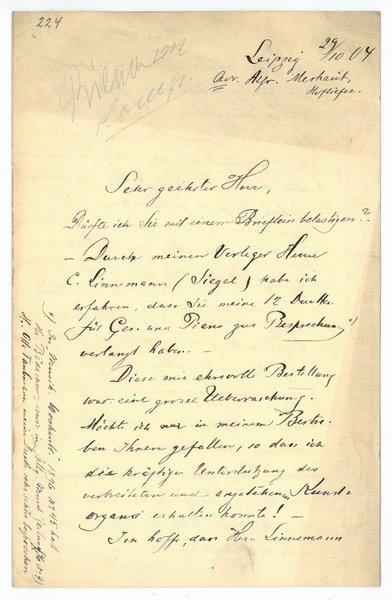 224
Leipzig 29/10 04
Adr. Alfr. Merhaut,
Hofliefer.
Sehr geehrter Herr,
Dürfte ich Sie mit einem Brieflein belästigen?
– Durch meinen Verleger Herrn
C. Linnemann (Siegel) habe ich
erfahren, dass Sie meine 12 Duette
für Ges. und Piano zur Besprechung *)
verlangt haben. –
Diese mir ehrevolle Bestellung
war eine grosse Ueberraschung.
Möcht ich nur in meinem Bestre-
ben Ihnen gefallen, so dass ich
die kräftige Unterstützung des
verbreiteten und angesehenen Kunst-
organs erhalten könnte! –
Ich hoffe, dass Herr Linnemann
*) Im Musik. Wochenbl. 1890 No 45 hat